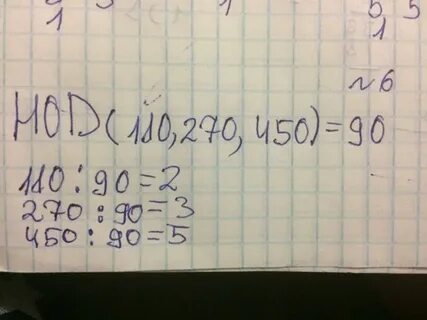 1
1
5 5
1
№6
НОD(110,270,450)=90
110:90=2
270:90=3
450:90=5